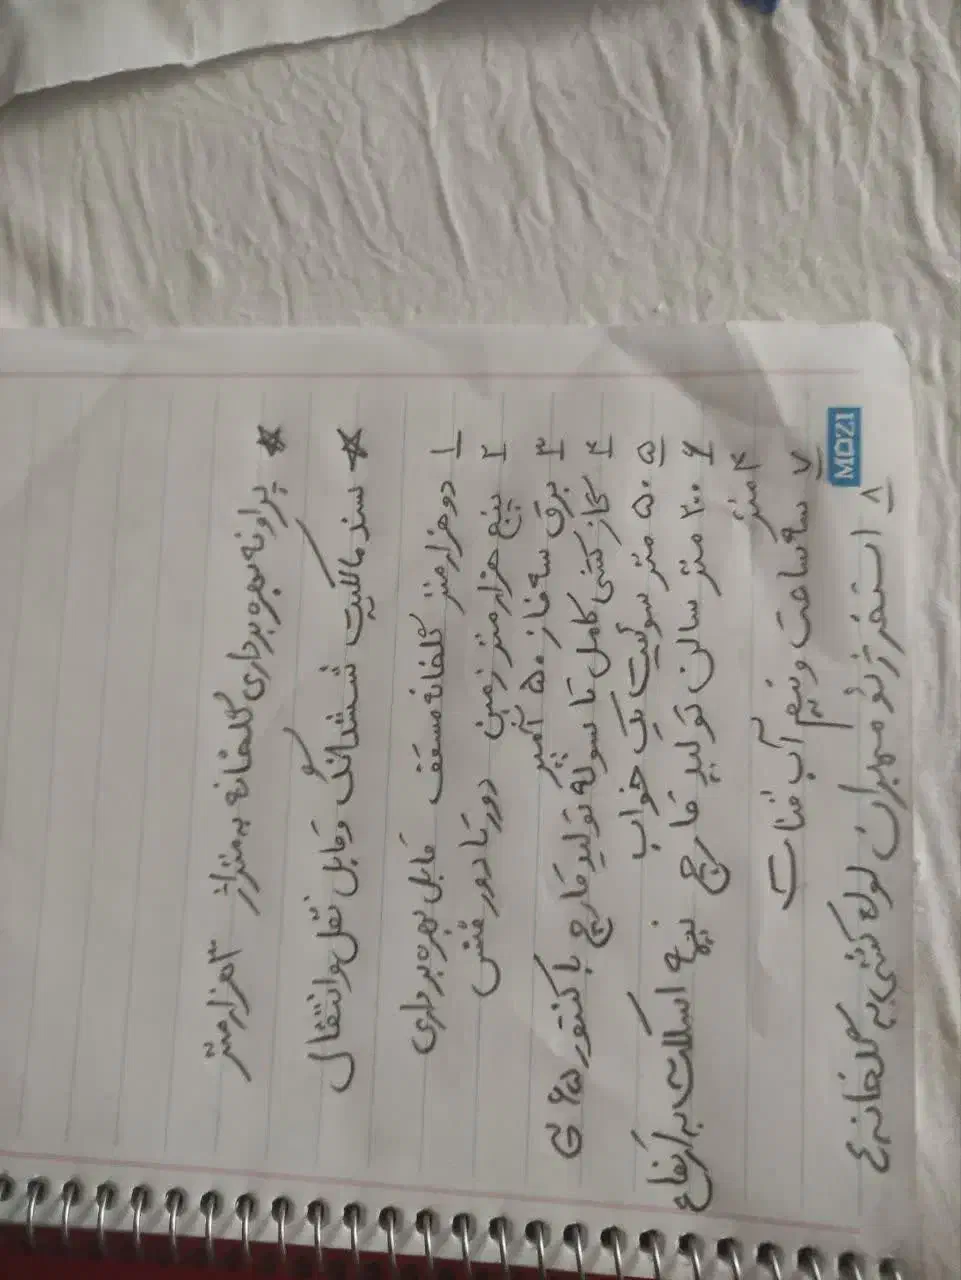 * پراونه بهره برداری گلخانه به متراژ ۳هزار متر
* سند مالکیت ششدانگ و قابل نقل وانتقال
۱ دوهزار متر گلخانه مسقف قابل بهره برداری
۲ پنج هزار متر زمین دور تا دور فنس
۳ برق سه فاز ۵۰ آمپر
۴ گاز کشی کامل تا سوله تولید قارچ با کنتور ۶۵ G
۵ ۵۰ متر سوئیت یک خواب
۶ ۲۰۰ متر سالن تولید قارچ نیمه اسکلت به ارتفاع
۴ متر
۷ سه ساعت ونیم آب قنات
۸ استخر ژئو ممبران لوله کشی به گلخانه
MOZI